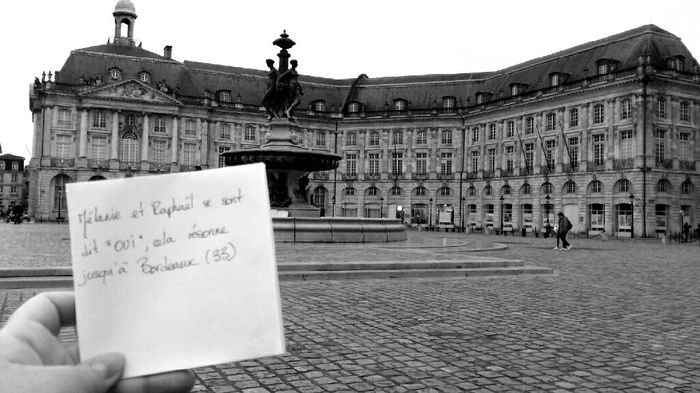 Mélanie et Raphaël se sont
dit "OUI", cela résonne
jusqu'à Bordeaux (33)